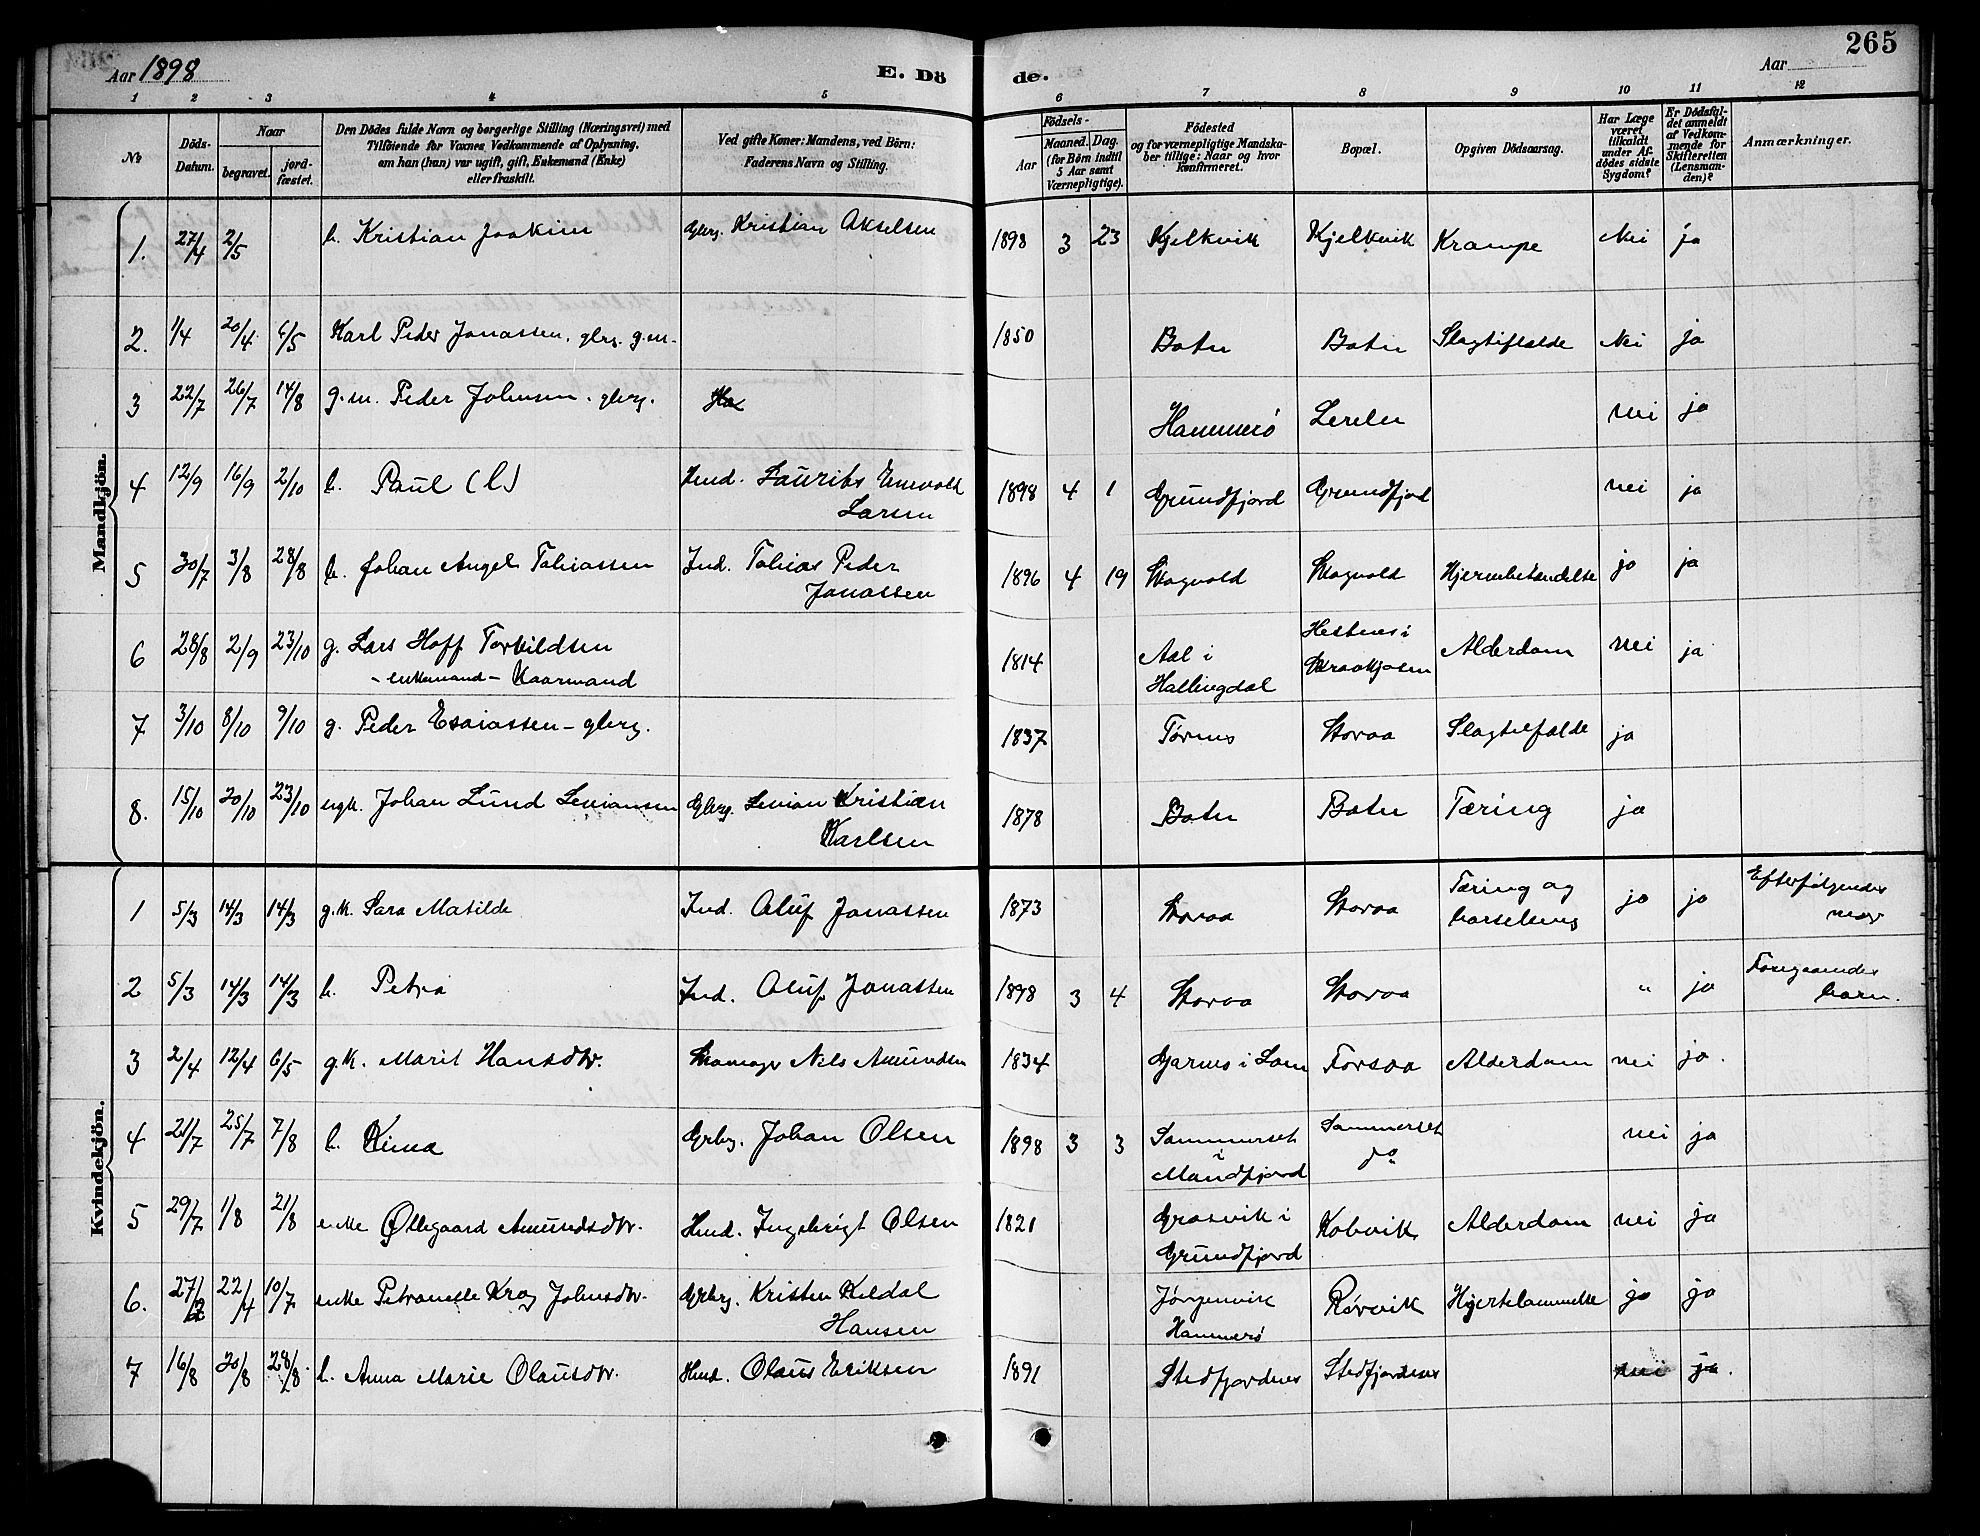 265
Aar 1898
E. Dö
de.
Aar
1 2 3 4 5 6 7 8 9 10 11 12
No
Döds-
Datum.
Naar
begravet.
jord-
fæstet.
Den Dödes fulde Navn og borgerlige Stilling (Næringsvei) med
Tilföiende for Voxnes Vedkommende af Oplysning,
om han (hun) var ugift, gift, Enkemand (Enke)
eller fraskilt.
Ved gifte Koner: Mandens, ved Börn:
Faderens Navn og Stilling.
Födsels-
Aar
Maaned.
Dag.
(for Börn indtil
5 Aar samt
Værnepligtige).
Födested
og for værnepligtige Mandska-
ber tillige: Naar og hvor
konfirmeret.
Bopæl.
Opgiven Dödsaarsag.
Har Læge
været
tilkaldt
under Af-
dödes sidste
Sygdom?
Er Dödsfal-
det anmeldt
af Vedkom-
mende for
Skifteretten
(Lensman-
den)?
Anmærkninger.
Mandkjön.
1. 27/4 2/5 b. Kristian Joakim Gbrg. Kristian Akselsen 1898 3 23 Kjelkvik Kjelkvik Krampe Nei ja
2. 1/4 20/4 6/5 Karl Peder Jonassen, gbrg. g.m. 1850 Botn Botn Slagtilfælde Nei ja
3 22/7 26/7 14/8 g.m. Peder Johnsen, gbrg. Ha Hammerö nei ja
4 12/9 16/9 2/10 b. Paul Hmd. Laurits Enevold
Larsen 1898 4 1 Grundfjord Grundfjord nei ja
5 30/7 3/8 28/8 b. Johan Angel Tobiassen Ind. Tobias Peder
Jonassen 1896 4 19 Skogvold Skogvold ja ja
6 28/8 2/9 23/10 g. Lars Hoff Torkildsen
- enkemand - Kaarmand 1814 Aal i
Hallingdal Hestnes i
Alderdom nei ja
7 3/10 8/10 9/10 g. Peder Esaiassen - gbrg. 1837 Storaa Slagtilfælde ja
8. 15/10 20/10 23/10 ugk. Johan Lund Levionsen Gbrg. Levion Kristian
Karlsen 1878 Botn Botn Tæring ja
Kvindekjön.
1 5/3 14/3 14/3 g.k. Sara Matilde Ind. Oluf Jonassen 1873 Storaa Storaa Tæring og
barselseng ja ja Efterfölgendes
mor
2 5/3 14/3 14/3 b. Petra Ind. Oluf Jonassen 1898 3 4 Storaa Storaa " ja Foregaaendes
barn.
3 2/4 12/4 6/5 g.k. Marit Hansdtr. Skomager Nils Amundsen 1834 Garmo i Lom Forsaa Alderdom nei ja.
4 21/7 25/7 7/8 b. Gbrg. Johan Olsen 1898 3 3 Sommerset
i
Mandfjord Sommerset
do nei ja
5 29/7 1/8 21/8 enke Öllegaard Amundsdtr. Hmd. Ingebrigt Olsen 1821 Grosvik i
Grundfjord Kobvik Alderdom nei ja
6. 22/4 10/7 enke Petronelle Krog Johnsdtr. Gbrg. Kristen Keldal
Hansen Jörgenvik
Hammerö Rörvik Hjertelammelse ja ja
7 16/8 20/8 28/8. b. Anna Marie Olausdtr. Hmd. Olaus Eriksen 1891 Stedfjordnes Stedfjordnes nei ja.